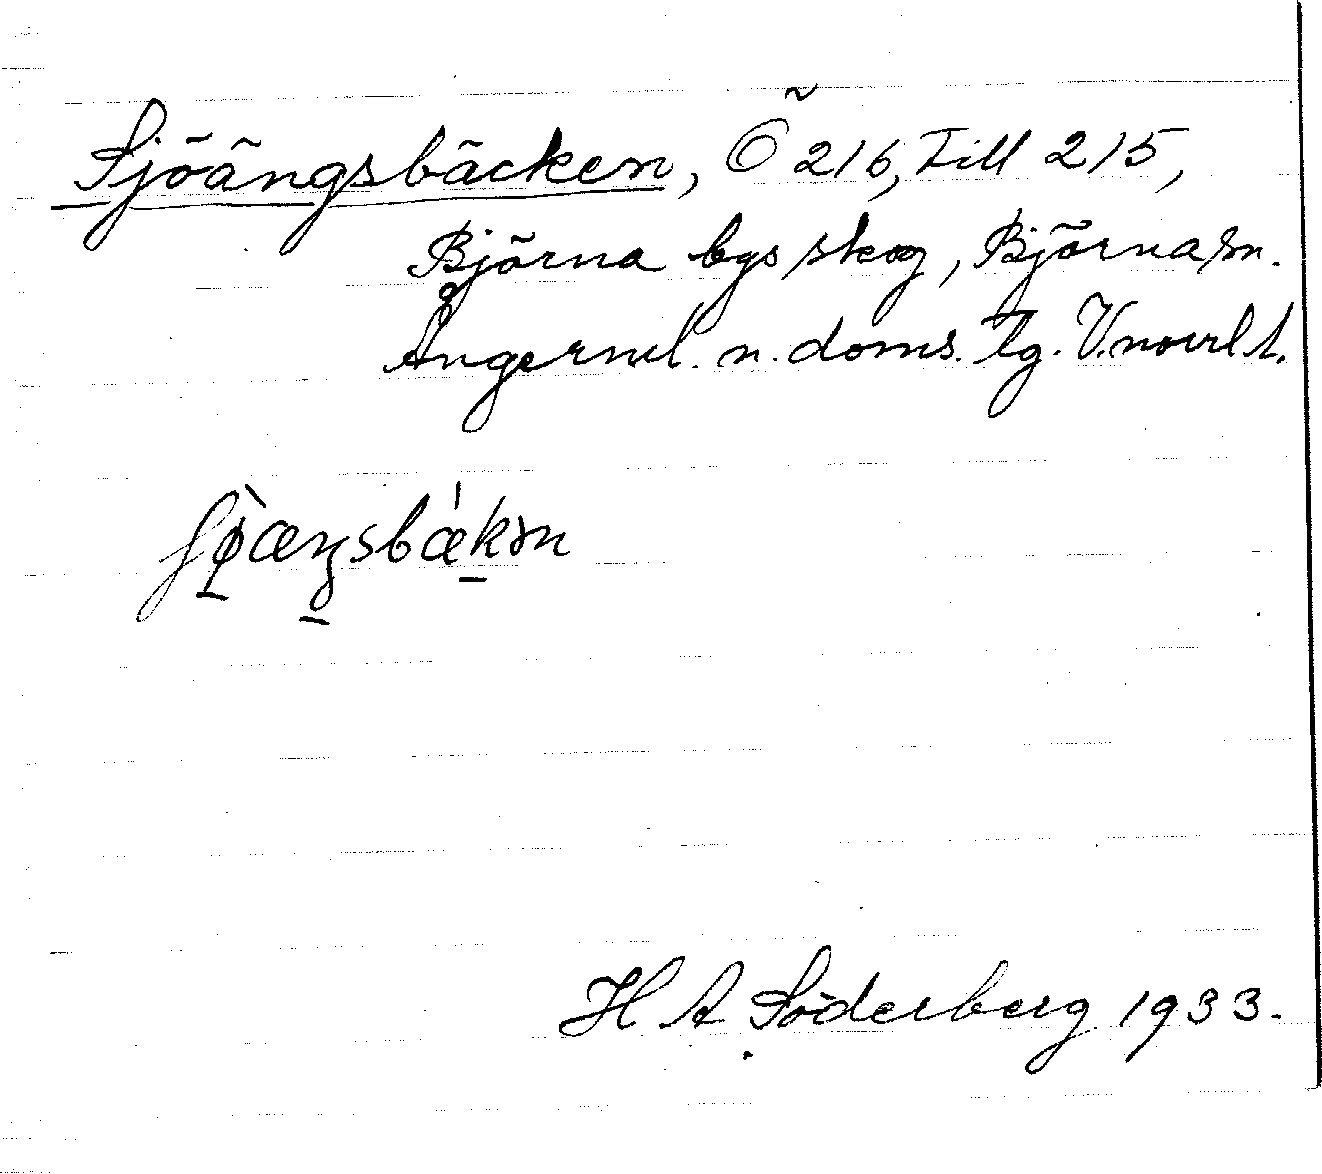 Sjöängsbäcken, Ö 216, Till 215,
Björna bys skog, Björna sn.
Ångerml. n. doms. lg. V.norrl l.
ʃø̀æŋsbǽkən
H A Söderberg 1933.